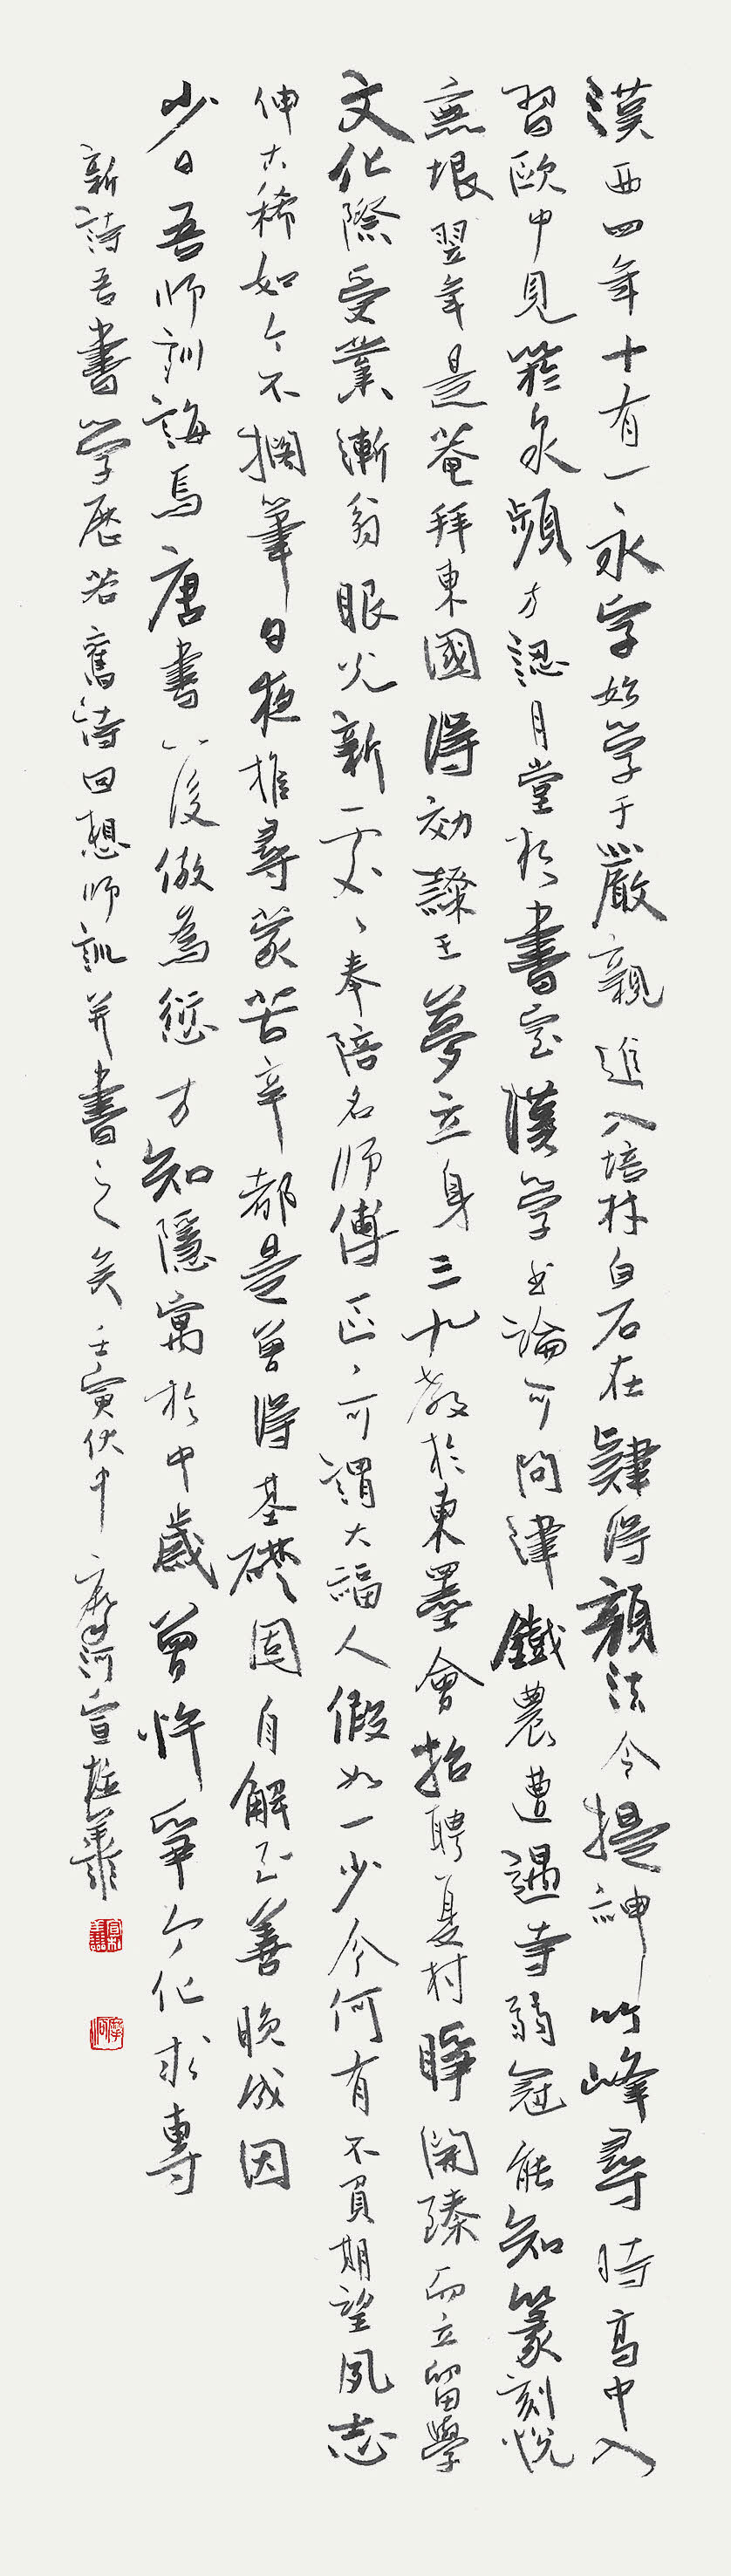 漢西四年十有一永字始學于嚴親進入培材白石在肄得顏法令提神竹峰尋時高中入
習歐中見菸泉頻方認月堂於書室漢學書論可問津鐵農遭遇寺弱冠能知篆刻悅
無垠翌年是菴拜東國得効隸王夢立身三九教於東墨會招聘夏村睜開臻而立留學
文化際受業漸翁眼光新一處々奉陪名師傅正々可謂大福人假如一少今何有不負期望夙志
伸古稀如今不擱筆日夜推尋蒙苦辛都是曾得基礎固自解至善晚成因
少日吾師訓誨焉唐書以後倣為愆方知隱寓於中歲曾忤爭今化求專
新詩吾書學歷若舊詩回想師訓并書之矣壬寅伏中摩河宣柱善